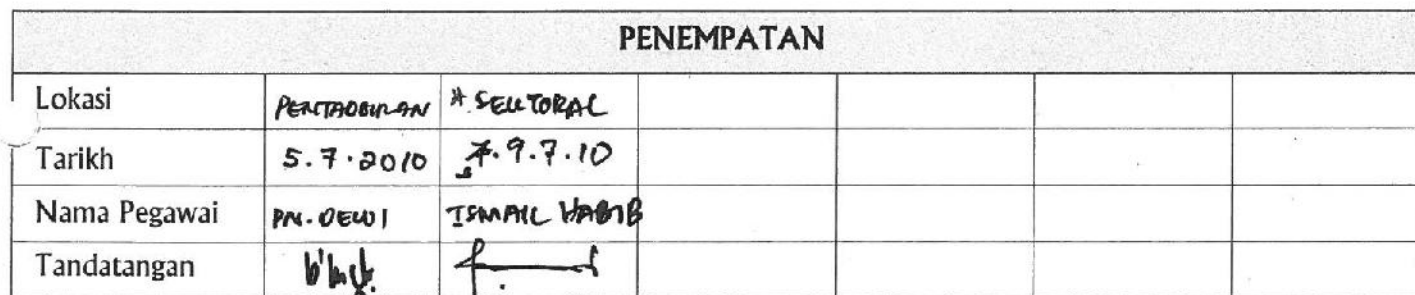 PENEMPATAN
Lokasi PENTADBIRAN * SEKTORAL
Tarikh 5.7.2010 9.7.10
Nama Pegawai PN. DEWI ISMAIL HABIB
Tandatangan